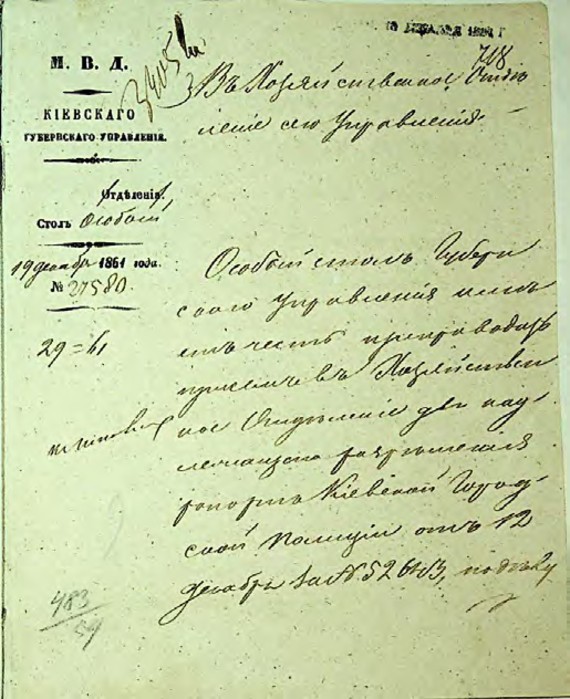 718
М. В. Д.
КІЕВСКАГО
ГУБЕРНСКАГО УПРАВЛЕНІЯ.
Отдѣленія.
Столъ Особый
19 декабр 1861 года.
№ 27580.
29=
Въ Хозяйственное Отдѣ
леніе сего Управленія.
Особый столъ Губерн
скаго Управленія имѣ
етъ честь препроводить
при семъ въ Хозяйствен
ное Отдѣленіе для над
лежащаго разрѣшенія
рапортъ Кіевской Город
ской Полиціи отъ 12
декабря за №
483